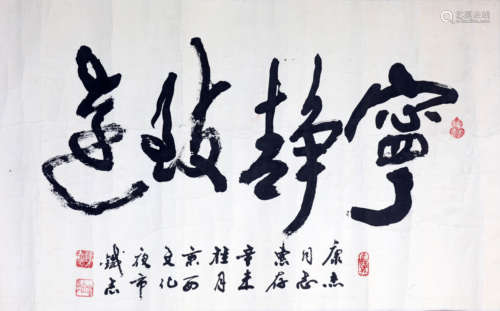 寧靜致遠
康杰
同志
惠存
辛未
桂月
京西
文化
夜市
鐵志